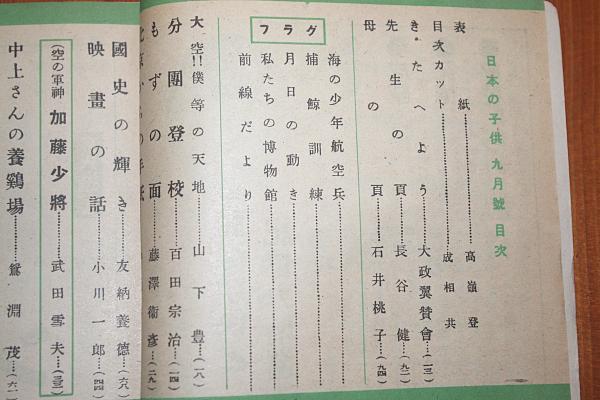 日本の子供 九月號 目次
表紙……高嶺登
目次カット……成相共
きたへよう……大政翼賛會…(一三)
先生の頁……長谷健…(九二)
母の頁……石井桃子…(九四)
グラフ
海の少年航空兵
捕鯨訓練
月日の動き
私たちの博物館
前線だより
大空!!僕等の天地……山下豊…(一八)
分團登校……百田宗治…(一四)
もずの面……藤澤衞彦…(二九)
國史の輝き……友納養德…(六八)
映畫の話……小川一郎…(四四)
(空の軍神) 加藤少將……武田雪夫…(三三)
中上さんの養鷄場……鴛淵茂…(六一)